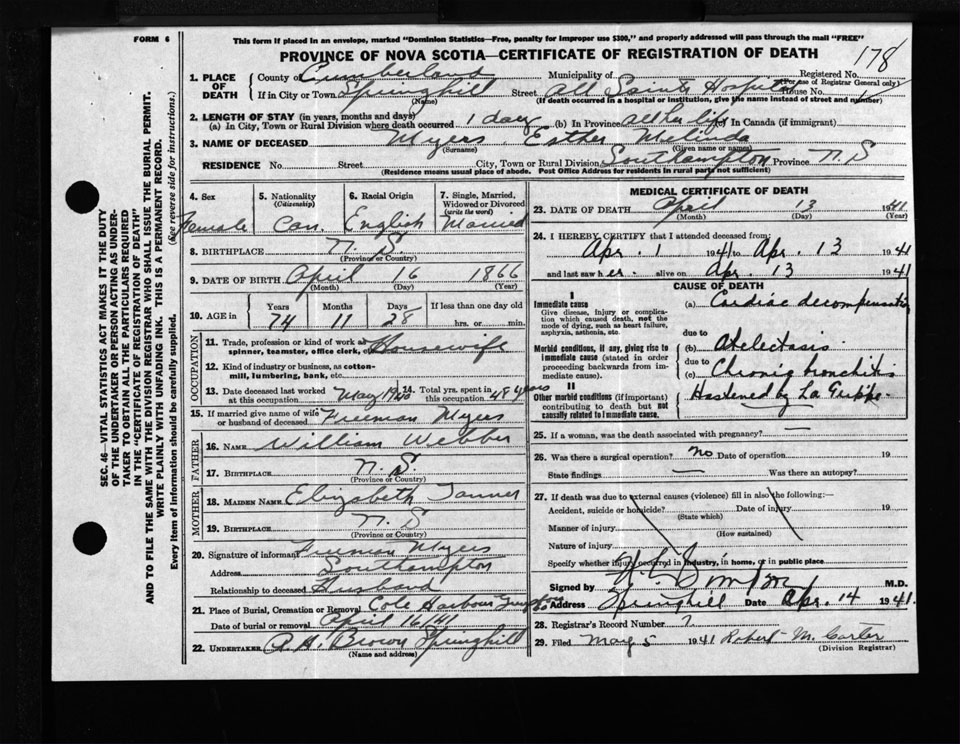 FORM 6
This form if placed in an envelope, marked "Dominion Statistics—Free, penalty for improper use $300," and properly addressed will pass through the mail "FREE"
PROVINCE OF NOVA SCOTIA—CERTIFICATE OF REGISTRATION OF DEATH
178
SEC. 46—VITAL STATISTICS ACT MAKES IT THE DUTY
OF THE UNDERTAKER OR PERSON ACTING AS UNDER-
TAKER TO OBTAIN ALL THE PARTICULARS REQUIRED
IN THE "CERTIFICATE OF REGISTRATION OF DEATH"
AND TO FILE THE SAME WITH THE DIVISION REGISTRAR WHO SHALL ISSUE THE BURIAL PERMIT.
WRITE PLAINLY WITH UNFADING INK. THIS IS A PERMANENT RECORD.
Every item of information should be carefully supplied. (See reverse side for instructions.)
1. PLACE OF DEATH
County of Cumberland Municipality of Registered No.
(For use of Registrar General only)
If in City or Town Springhill Street All Saints Hospital House No.
(Name) (If death occurred in a hospital or institution, give the name instead of street and number)
2. LENGTH OF STAY (in years, months and days)
(a) In City, Town or Rural Division where death occurred 1 day (b) In Province all her life (c) In Canada (if immigrant)
3. NAME OF DECEASED Myers Esther Melinda
(Surname) (Given name or names)
RESIDENCE No. Street City, Town or Rural Division Southampton Province N. S
(Residence means usual place of abode. Post Office Address for residents in rural party not sufficient)
4. Sex Female
5. Nationality (Citizenship) Can.
6. Racial Origin English
7. Single, Married, Widowed or Divorced (write the word) Married
8. BIRTHPLACE N. S.
(Province or Country)
9. DATE OF BIRTH April 16 1866
(Month) (Day) (Year)
10. AGE in Years Months Days If less than one day old
74 11 28 hrs. or min.
OCCUPATION
11. Trade, profession or kind of work as spinner, teamster, office clerk, etc. Housewife
12. Kind of industry or business, as cotton-mill, lumbering, bank, etc.
13. Date deceased last worked at this occupation May 1940 14. Total yrs. spent in this occupation 48 years
15. If married give name of wife or husband of deceased Freeman Myers
FATHER
16. NAME William Webber
17. BIRTHPLACE N. S
(Province or Country)
MOTHER
18. MAIDEN NAME Elizabeth Tanner
19. BIRTHPLACE N. S
(Province or Country)
20. Signature of informant Freeman Myers
Address Southampton
Relationship to deceased Husband
21. Place of Burial, Cremation or Removal Cole Harbour
Date of burial or removal April 16/41
22. UNDERTAKER A. H. Brown Springhill
(Name and address)
MEDICAL CERTIFICATE OF DEATH
23. DATE OF DEATH April 13 1941
(Month) (Day) (Year)
24. I HEREBY CERTIFY that I attended deceased from:
Apr. 1 1941 to Apr. 13 1941
and last saw her alive on Apr. 13 1941
CAUSE OF DEATH
I
Immediate cause
Give disease, injury or complication which caused death, not the mode of dying, such as heart failure, asphyxia, asthenia, etc.
(a) Cardiac decompensation
due to
Morbid conditions, if any, giving rise to immediate cause (stated in order proceeding backwards from immediate cause).
(b) Atelectasis
due to
(c) Chronic bronchitis
II
Other morbid conditions (if important) contributing to death but not causally related to immediate cause.
Hastened by La Grippe.
25. If a woman, was the death associated with pregnancy? —
26. Was there a surgical operation? No Date of operation 19
State findings — Was there an autopsy?
27. If death was due to external causes (violence) fill in also the following:—
Accident, suicide or homicide? Date of injury 19
(State which)
Manner of injury
(How sustained)
Nature of injury
Specify whether injury occurred in industry, in home, or in public place
Signed by Simpson M.D.
Address Springhill Date Apr. 14 1941.
28. Registrar's Record Number 7
29. Filed May 5 1941 Robert M. Carter
(Division Registrar)